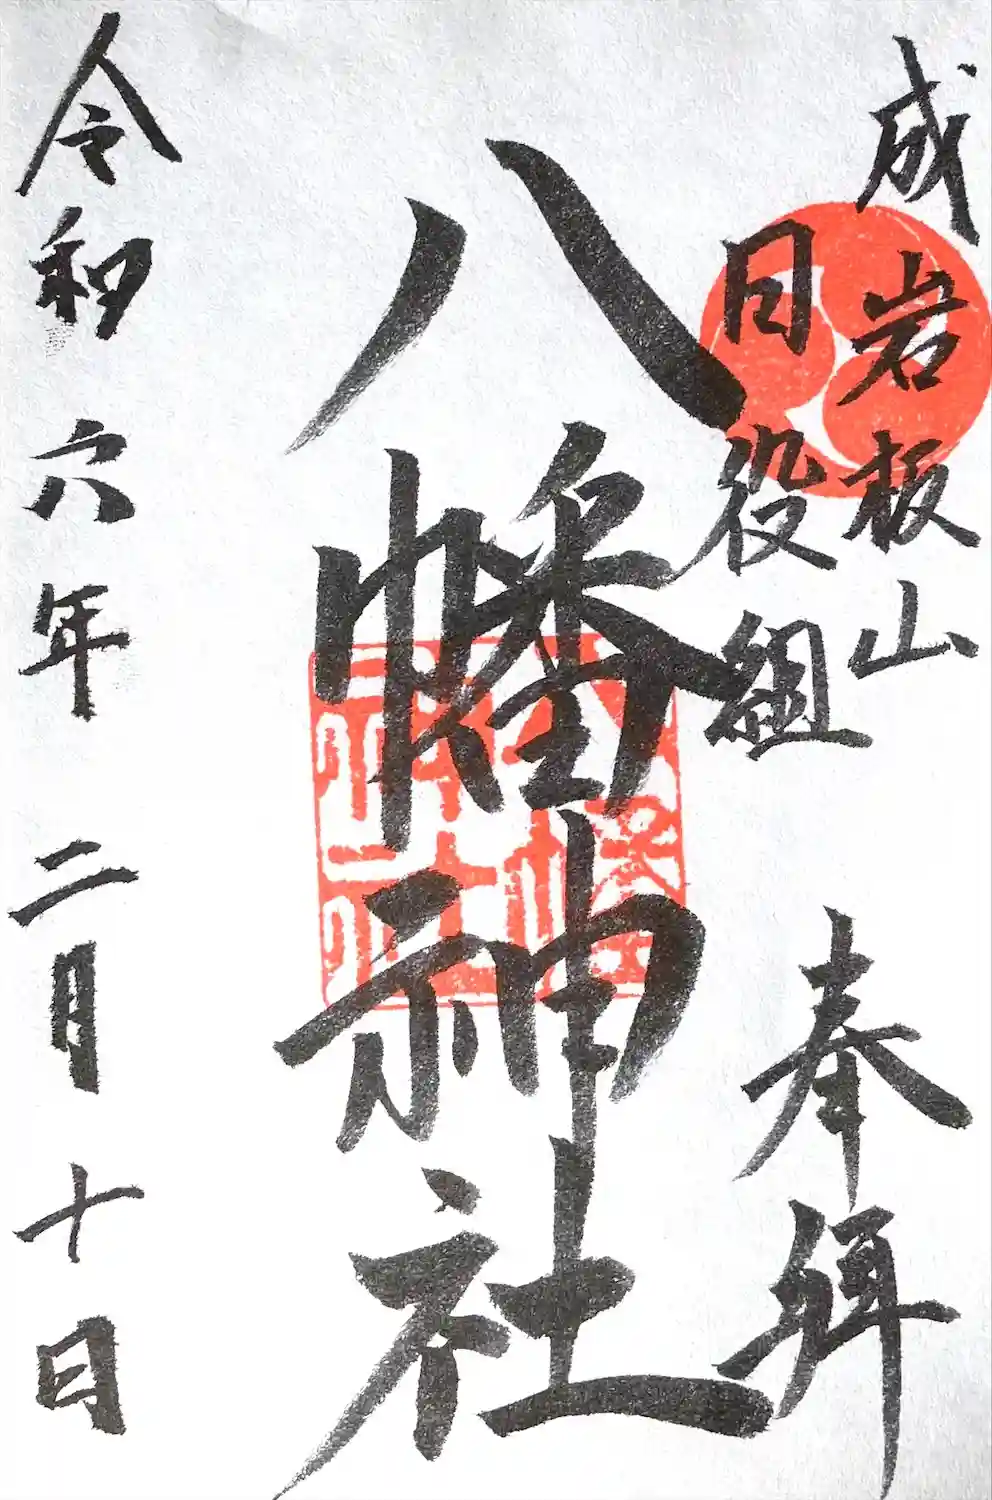 成岩板山
目役組
奉拝
八幡神社
八幡
神社
令和六年二月十日